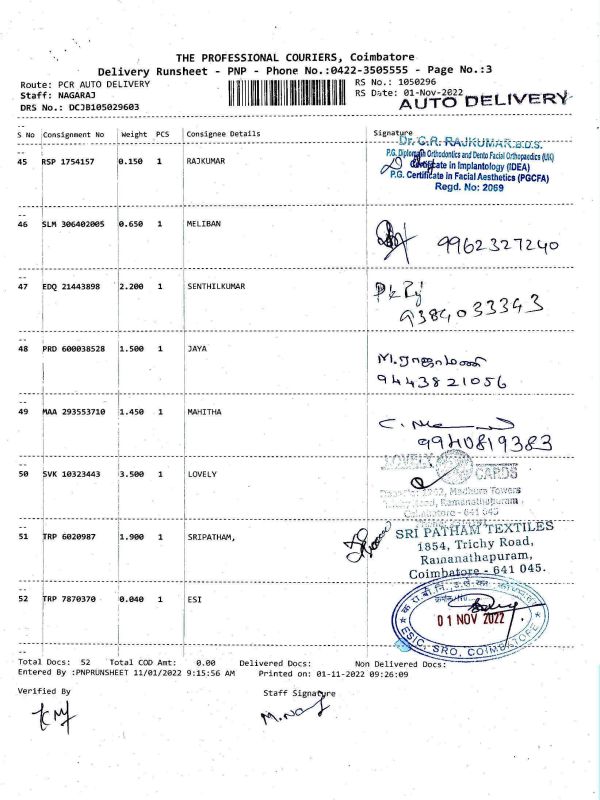 THE PROFESSIONAL COURIERS, Coimbatore
Delivery Runsheet - PNP - Phone No.:0422-3505555 - Page No.:3
Route: PCR AUTO DELIVERY
Staff: NAGARAJ
DRS No.: DCJB105029603
RS No.: 1050296
RS Date: 01-Nov-2022
AUTO DELIVERY
S No Consignment No Weight PCS Consignee Details Signature
45 RSP 1754157 0.150 1 RAJKUMAR
Dr. C.R. RAJKUMAR.B.D.S.
P.G. Diploma in Orthodontics and Dento Facial Orthopaedics (UK)
Certificate in Implantology (IDEA)
P.G. Certificate in Facial Aesthetics (PGCFA)
Regd. No: 2069
46 SLM 306402005 0.650 1 MELIBAN
9962327240
47 EDQ 21443898 2.200 1 SENTHILKUMAR
9384033343
48 PRD 600038528 1.500 1 JAYA
M.ராஜாமணி
9443821056
49 MAA 293553710 1.450 1 MAHITHA
9940819383
50 SVK 10323443 3.500 1 LOVELY
LOVELY CARDS
Madhura Towers
Ramanathapuram,
Coimbatore - 641 045
51 TRP 6020987 1.900 1 SRIPATHAM,
SRI PATHAM TEXTILES
1854, Trichy Road,
Ramanathapuram,
Coimbatore - 641 045.
52 TRP 7870370 0.040 1 ESI
01 NOV 2022
ESIC, SRO, COIMBATORE
Total Docs: 52 Total COD Amt: 0.00 Delivered Docs: Non Delivered Docs:
Entered By :PNPRUNSHEET 11/01/2022 9:15:56 AM Printed on: 01-11-2022 09:26:09
Verified By Staff Signature